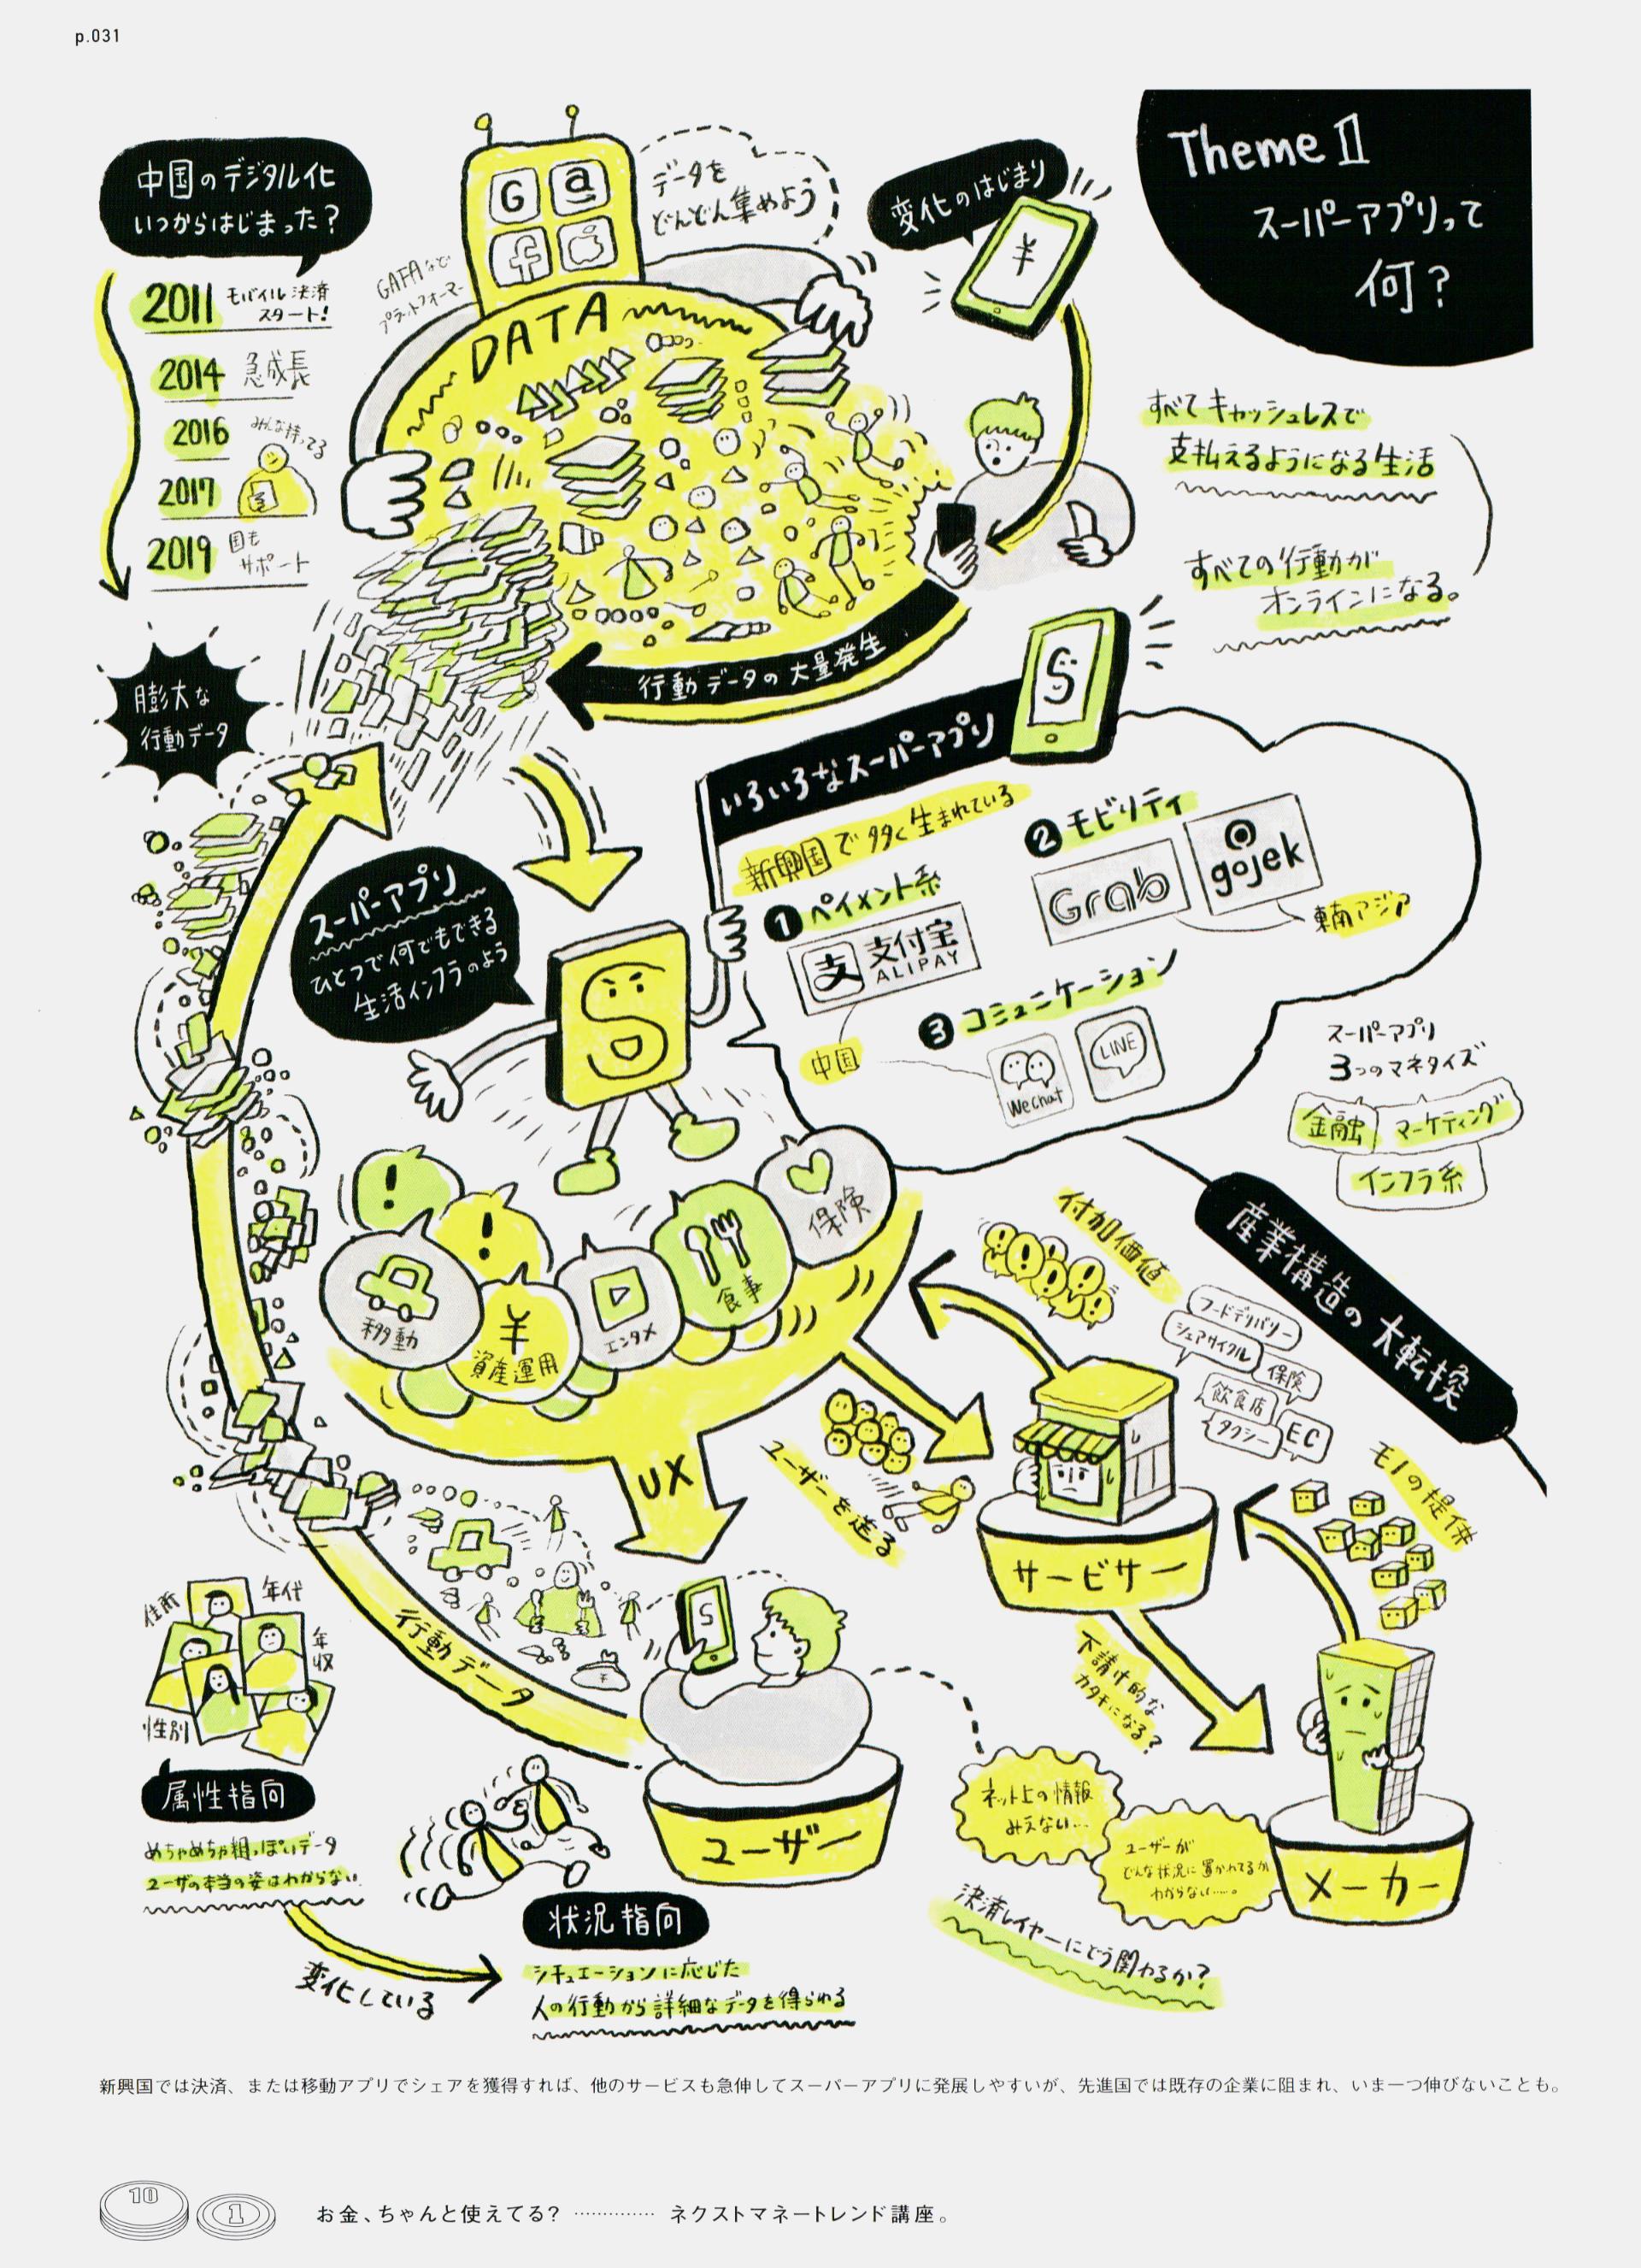 p.031
Theme Ⅱ
スーパーアプリって
何?
中国のデジタル化
いつからはじまった?
2011 モバイル決済
スタート!
2014 急成長
2016 みんな持ってる
2017
2019 国も
サポート
G a
f
GAFAなど
プラットフォーマー
データを
どんどん集めよう
DATA
変化のはじまり
¥
すべてキャッシュレスで
支払えるようになる生活
すべての行動が
オンラインになる。
行動データの大量発生
膨大な
行動データ
S
いろいろなスーパーアプリ
新興国で多く生まれている
1 ペイメント系
支 支付宝
ALIPAY
中国
2 モビリティ
Grab
gojek
東南アジア
3 コミュニケーション
WeChat
LINE
スーパーアプリ
ひとつで何でもできる
生活インフラのよう
S
スーパーアプリ
3つのマネタイズ
金融 マーケティング
インフラ系
産業構造の大転換
!
!
移動
¥
資産運用
エンタメ
食事
保険
UX
付加価値
フードデリバリー
シェアサイクル
保険
飲食店
タクシー
EC
ユーザーを送る
サービサー
モノの提供
下請け的な
カタチになる?
メーカー
ネット上の情報
みえない…
ユーザーが
どんな状況に置かれてるか
わからない……。
決済レイヤーにどう関わるか?
行動データ
S
ユーザー
住所
年代
年収
性別
属性指向
めちゃめちゃ粗っぽいデータ
ユーザの本当の姿はわからない
変化している
状況指向
シチュエーションに応じた
人の行動から詳細なデータを得られる
新興国では決済、または移動アプリでシェアを獲得すれば、他のサービスも急伸してスーパーアプリに発展しやすいが、先進国では既存の企業に阻まれ、いま一つ伸びないことも。
10
1
お金、ちゃんと使えてる? ………… ネクストマネートレンド講座。